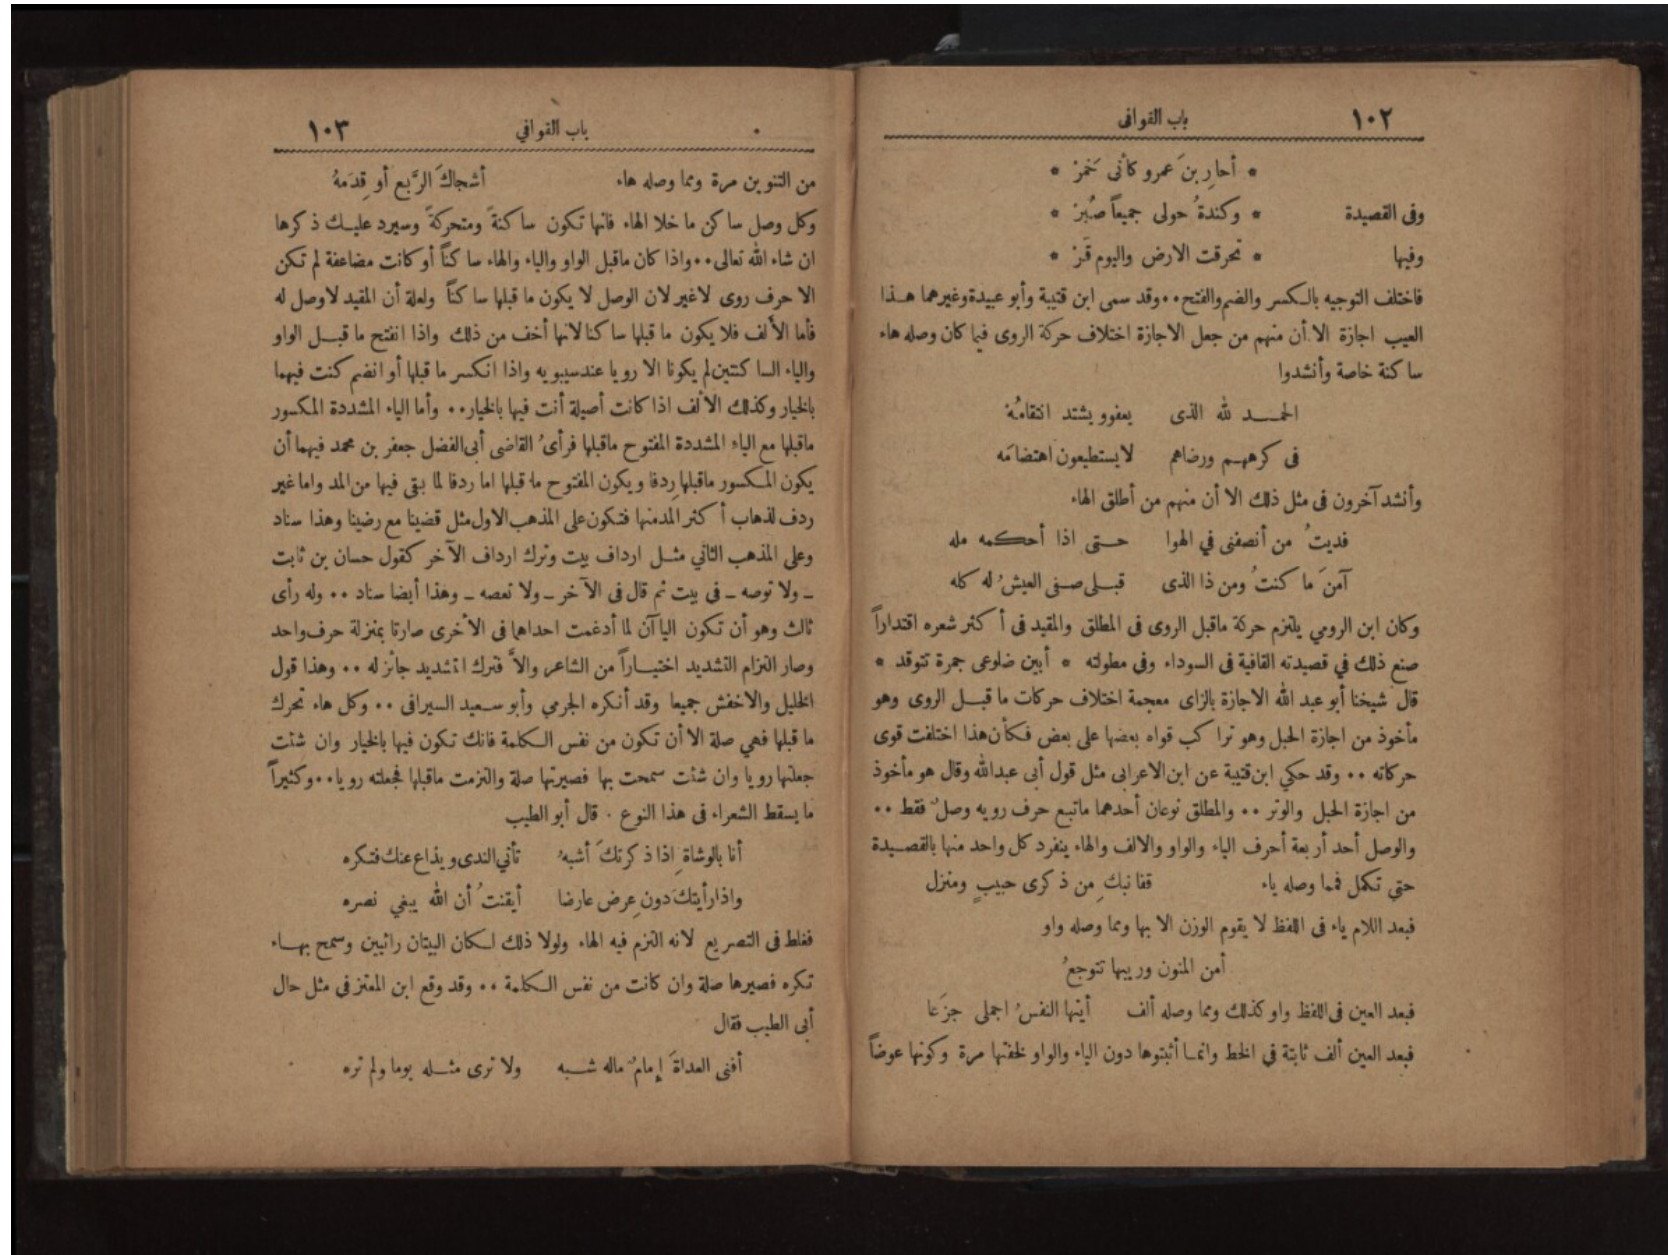 ١٠٢ باب القوافى
* أحارِ بنَ عمرو كأنى خَمِرْ *
وفى القصيدة * وكندةُ حولى جميعاً صُبُرْ *
وفيها * تحرقت الارض واليوم قَرْ *
فاختلف التوجيه بالكسر والضم والفتح ٠٠ وقد سمى ابن قتيبة وأبو عبيدة وغيرهما هذا
العيب اجازة الا أن منهم من جعل الاجازة اختلاف حركة الروى فيما كان وصله هاء
ساكنة خاصة وأنشدوا
الحمد لله الذى يعفو ويشتد انتقامُهْ
فى كرههم ورضاهم لا يستطيعون اهتضامَه
وأنشد آخرون فى مثل ذلك الا أن منهم من أطلق الهاء
فديتُ من أنصفنى في الهوا حتى اذا أحكمه مله
آمنَ ما كنتُ ومن ذا الذى قبلى صفى العيشُ له كله
وكان ابن الرومي يلتزم حركة ماقبل الروى فى المطلق والمقيد فى أكثر شعره اقتداراً
صنع ذلك في قصيدته القافية فى السوداء وفى مطولته * أبين ضلوعى جمرة تتوقد *
قال شيخنا أبو عبد الله الاجازة بالزاى معجمة اختلاف حركات ما قبل الروى وهو
مأخوذ من اجازة الحبل وهو تراكب قواه بعضها على بعض فكأن هذا اختلفت قوى
حركاته ٠٠ وقد حكي ابن قتيبة عن ابن الاعرابى مثل قول أبى عبدالله وقال هو مأخوذ
من اجازة الحبل والوتر ٠٠ والمطلق نوعان أحدهما ماتبع حرف رويه وصلٌ فقط ٠٠
والوصل أحد أربعة أحرف الياء والواو والالف والهاء ينفرد كل واحد منها بالقصيدة
حتي تكمل فمما وصله ياء قفا نبكِ مِن ذكرى حبيبٍ ومنزل
فبعد اللام ياء فى اللفظ لا يقوم الوزن الا بها ومما وصله واو
أمن المنون وريبها تتوجعُ
فبعد العين فى اللفظ واو كذلك ومما وصله ألف أيتها النفسُ اجملى جزَعَا
فبعد العين ألف ثابتة في الخط وانما أثبتوها دون الياء والواو لخفتها مرة وكونها عوضاً
باب القوافي ١٠٣
من التنوين مرة ومما وصله هاء أشجاكَ الرَّبع أو قِدَمهُ
وكل وصل ساكن ما خلا الهاء فانها تكون ساكنةً ومتحركةً وسيرد عليك ذكرها
ان شاء الله تعالى ٠٠ واذا كان ماقبل الواو والياء والهاء ساكناً أو كانت مضاعفة لم تكن
الا حرف روى لاغير لان الوصل لا يكون ما قبلها ساكناً ولعلة أن المقيد لاوصل له
فأما الألف فلا يكون ما قبلها ساكنا لانها أخف من ذلك واذا انفتح ما قبل الواو
والياء الساكنتين لم يكونا الا رويا عند سيبويه واذا انكسر ما قبلها أو انضم كنت فيهما
بالخيار وكذلك الألف اذا كانت أصيلة أنت فيها بالخيار ٠٠ وأما الياء المشددة المكسور
ماقبلها مع الياء المشددة المفتوح ماقبلها فرأىُ القاضى أبى الفضل جعفر بن محمد فيهما أن
يكون المكسور ماقبلها ردفا ويكون المفتوح ما قبلها اما ردفا لما بقى فيها من المد واما غير
ردف لذهاب أكثر المد منها فتكون على المذهب الاول مثل قضينا مع رضينا وهذا سناد
وعلى المذهب الثاني مثل ارداف بيت وترك ارداف الآخر كقول حسان بن ثابت
ـ ولا توصه ـ فى بيت ثم قال فى الآخر ـ ولا تعصه ـ وهذا أيضا سناد ٠٠ وله رأى
ثالث وهو أن تكون الياآن لما أدغمت احداهما فى الأخرى صارتا بمنزلة حرف واحد
وصار التزام التشديد اختياراً من الشاعر والاَّ فترك التشديد جائز له ٠٠ وهذا قول
الخليل والاخفش جميعا وقد أنكره الجرمي وأبو سعيد السيرافى ٠٠ وكل هاء تحرك
ما قبلها فهي صلة الا أن تكون من نفس الكلمة فانك تكون فيها بالخيار وان شئت
جعلتها رويا وان شئت سمحت بها فصيرتها صلة والتزمت ماقبلها فجعلته رويا ٠٠ وكثيراً
ما يسقط الشعراء فى هذا النوع ٠ قال أبو الطيب
أنا بالوشاةِ اذا ذكرتكَ أشبهُ تأتي الندى ويذاع عنك فتكره
واذا رأيتكَ دون عِرض عارضا أيقنتُ أن الله يبغي نصره
فغلط فى التصريع لانه التزم فيه الهاء ولولا ذلك لكان البيتان رائيين وسمح بهاء
تكره فصيرها صلة وان كانت من نفس الكلمة ٠٠ وقد وقع ابن المعتز فى مثل حال
أبى الطيب فقال
أفنى العداةَ إمامٌ ماله شبه ولا ترى مثله يوما ولم تره